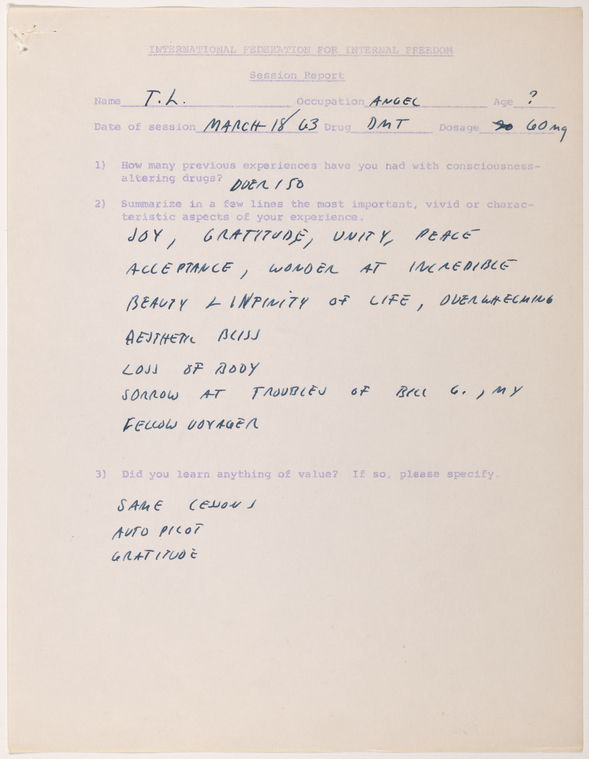 INTERNATIONAL FEDERATION FOR INTERNAL FREEDOM
Session Report
Name T.L. Occupation ANGEL Age ?
Date of session MARCH 18/63 Drug DMT Dosage 60 mg
1) How many previous experiences have you had with consciousness-
altering drugs? OVER 150
2) Summarize in a few lines the most important, vivid or charac-
teristic aspects of your experience.
JOY, GRATITUDE, UNITY, PEACE
ACCEPTANCE, WONDER AT INCREDIBLE
BEAUTY & INFINITY OF LIFE, OVERWHELMING
AESTHETIC BLISS
LOSS OF BODY
SORROW AT TROUBLES OF BILL G., MY
FELLOW VOYAGER
3) Did you learn anything of value? If so, please specify.
SAME LESSONS
AUTO PILOT
GRATITUDE